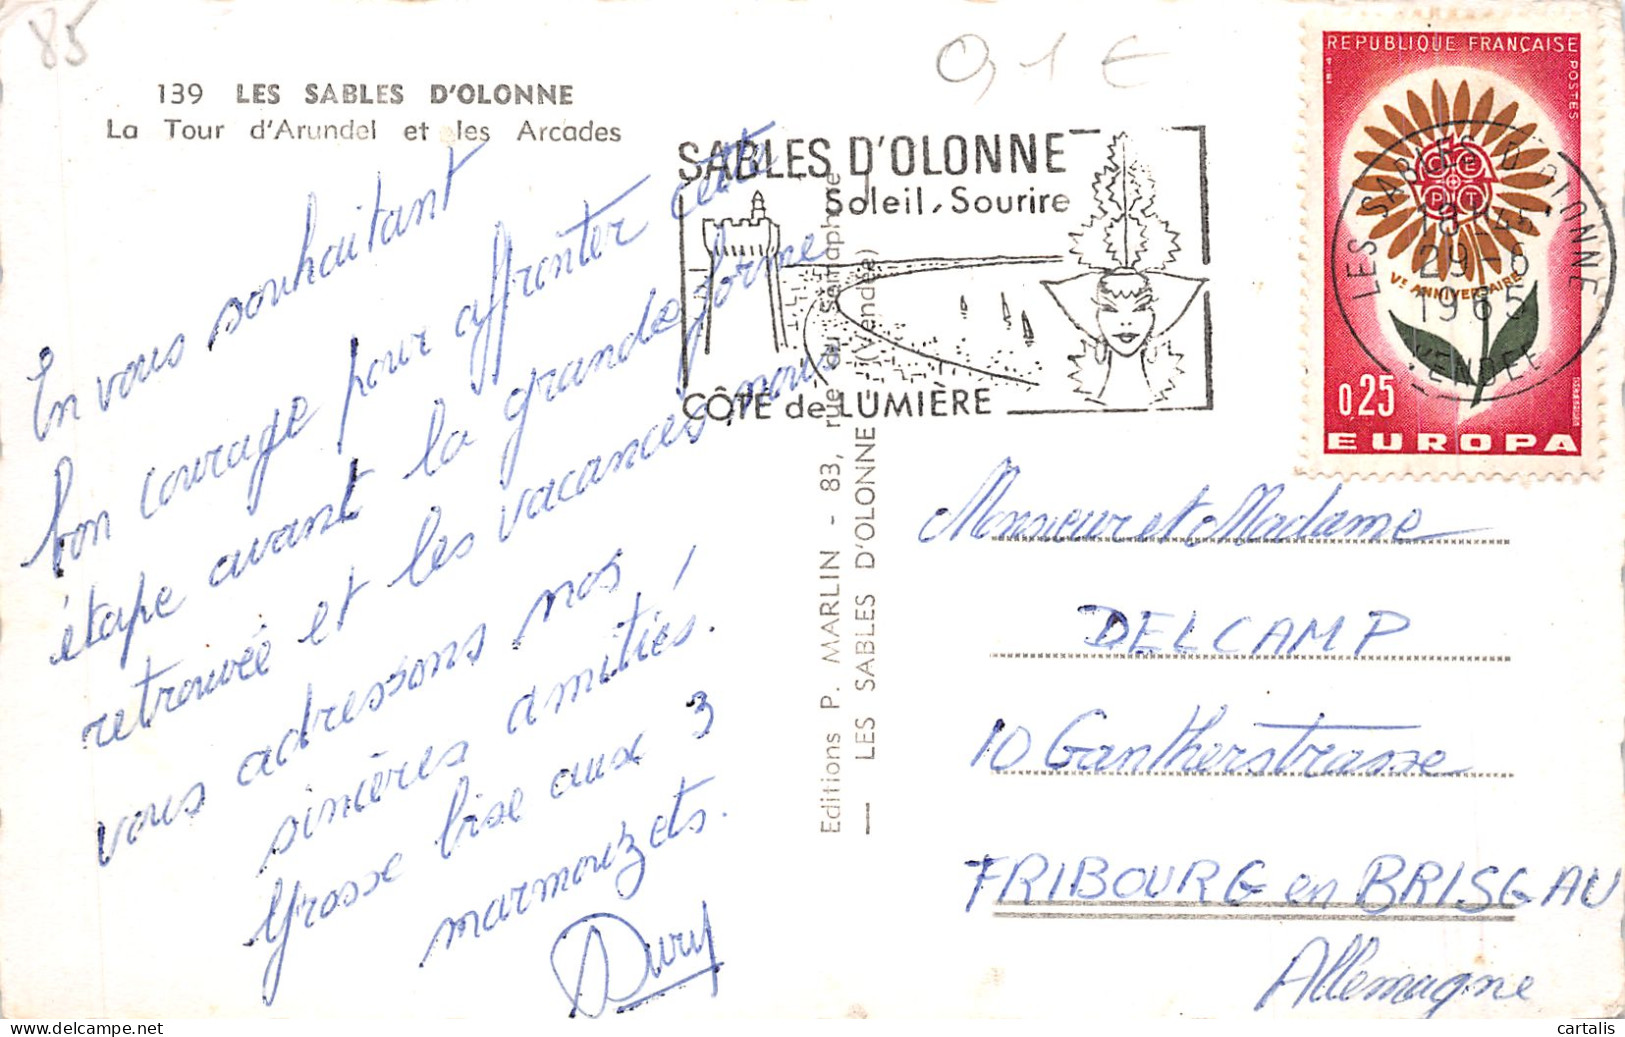 85
0,1 €
139 LES SABLES D'OLONNE
La Tour d'Arundel et les Arcades
SABLES D'OLONNE
Soleil, Sourire
CÔTE de LUMIÈRE
REPUBLIQUE FRANÇAISE
POSTES
CEPT
Vᵉ ANNIVERSAIRE
0,25
EUROPA
LES SABLES D'OLONNE
29-6
1965
VENDEE
En vous souhaitant
bon courage pour affronter cette
étape avant la grande forme
retrouvée et les vacances, nous
vous adressons nos
sincères amitiés.
Grosse bise aux 3
marmouzets.
Editions P. MARLIN - 83, rue du Sémaphore
LES SABLES D'OLONNE (Vendée)
Monsieur et Madame
DELCAMP
10 Gantherstrasse
FRIBOURG en BRISGAU
Allemagne
cartalis